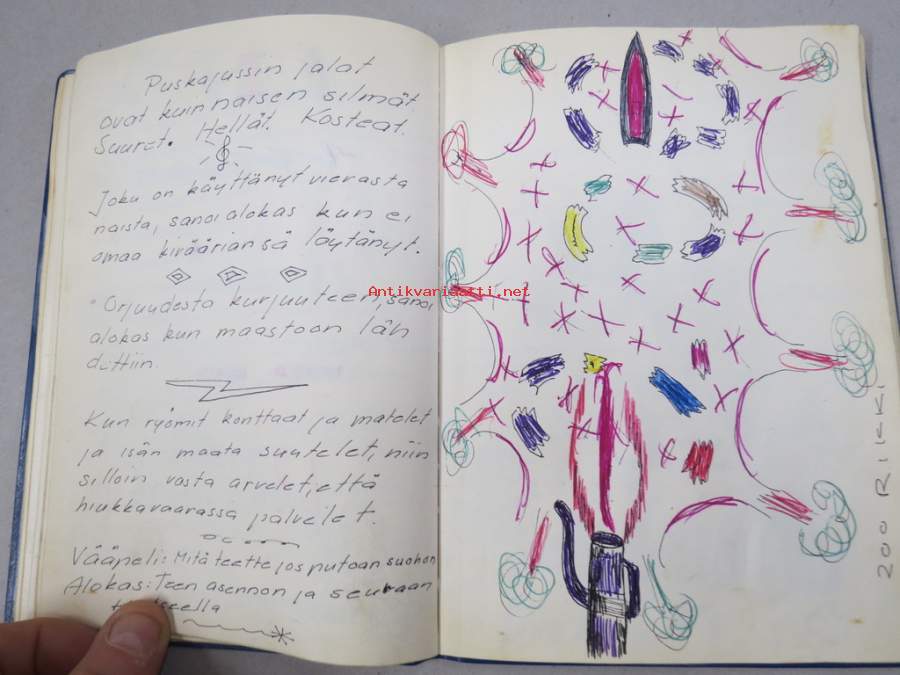 Puskajussin jalat
ovat kuin naisen silmät
Suuret. Hellät. Kosteat.
Joku on käyttänyt vierasta
naista, sanoi alokas kun ei
omaa kivääriänsä löytänyt.
Orjuudesta kurjuuteen, sanoi
alokas kun maastoon läh
dettiin.
Kun ryömit konttaat ja matelet
ja isän maata suutelet, niin
silloin vasta arvelet, että
hiukkavaarassa palvelet.
Vääpeli: Mitä teette jos putoan suohon
Alokas: Teen asennon ja seuraan
Antikvariaatti.net
200 RIIKKI